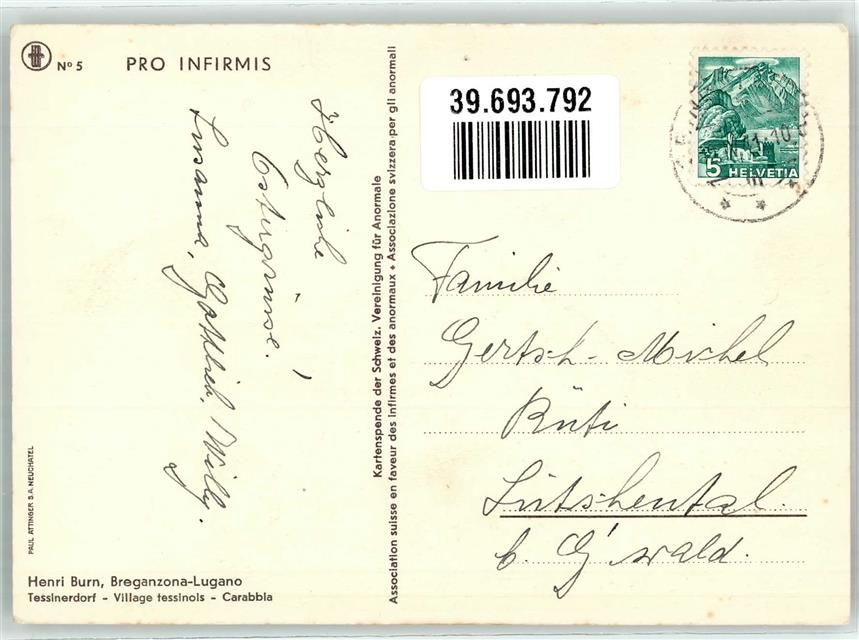 Nº 5 PRO INFIRMIS
Herzliche
Ostergrüsse!
Susanna, Gottlieb, Willy.
PAUL ATTINGER S.A. NEUCHATEL
Henri Burn, Breganzona-Lugano
Tessinerdorf - Village tessinois - Carabbia
Kartenspende der Schweiz. Vereinigung für Anormale
Association suisse en faveur des infirmes et des anormaux • Associazione svizzera per gli anormali
39.693.792
5 HELVETIA
Familie
Gertsch-Michel
Rüti
Lütschental
b. G'wald.